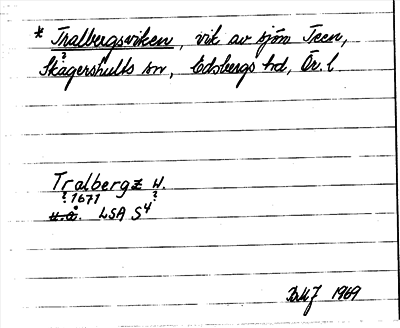 * Tralbergsviken, vik av sjön Teen,
?
Skagershults sn, Edsbergs hd, Ör. l.
Tralbergz W.
? 1671 ?
u.å. LSA S4
1969